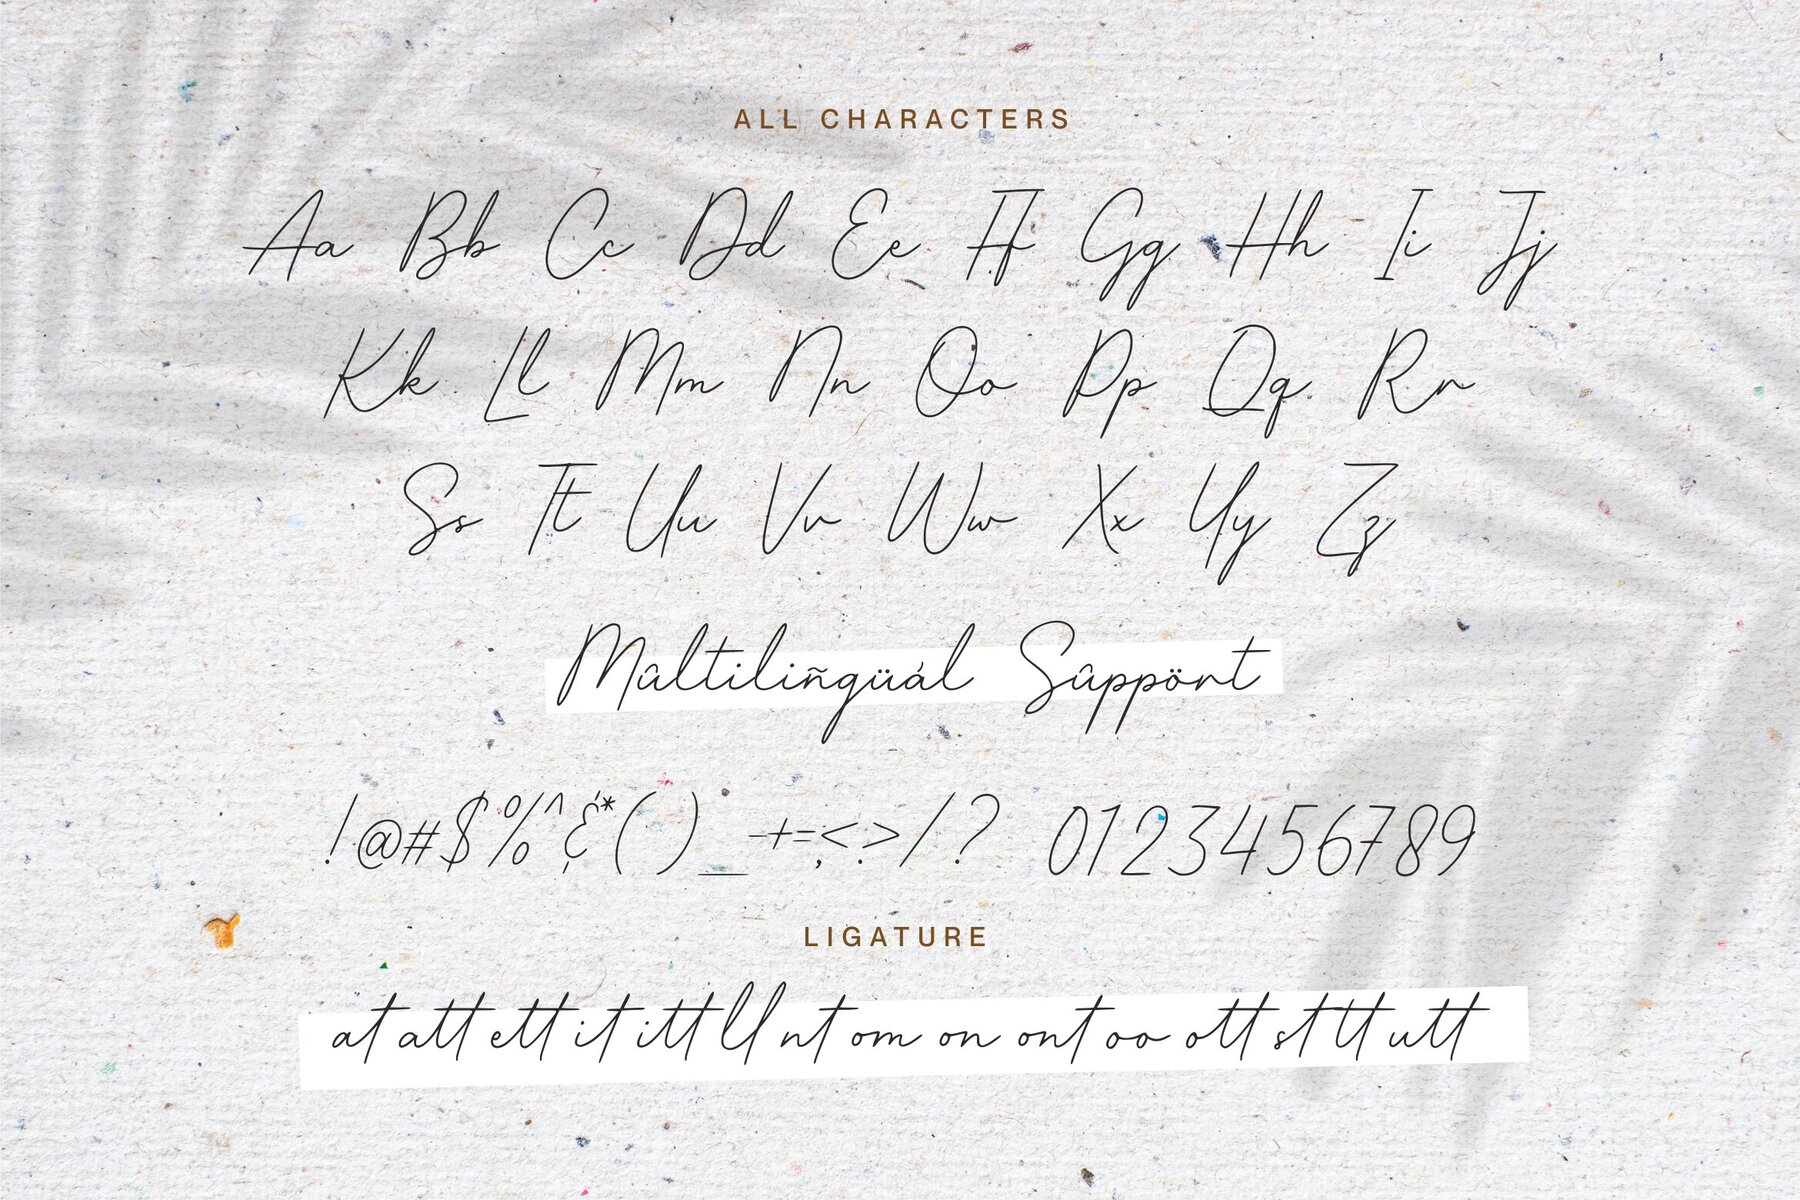 ALL CHARACTERS
Aa Bb Cc Dd Ee Ff Gg Hh Ii Jj
Kk Ll Mm Nn Oo Pp Qq Rr
Ss Tt Uu Vv Ww Xx Yy Zz
Mûltiliñgüál Sûppört
!@#$%^&*( )_-+=;<:>/? 0123456789
LIGATURE
at att ett it itt ll nt om on ont oo ott st tt utt